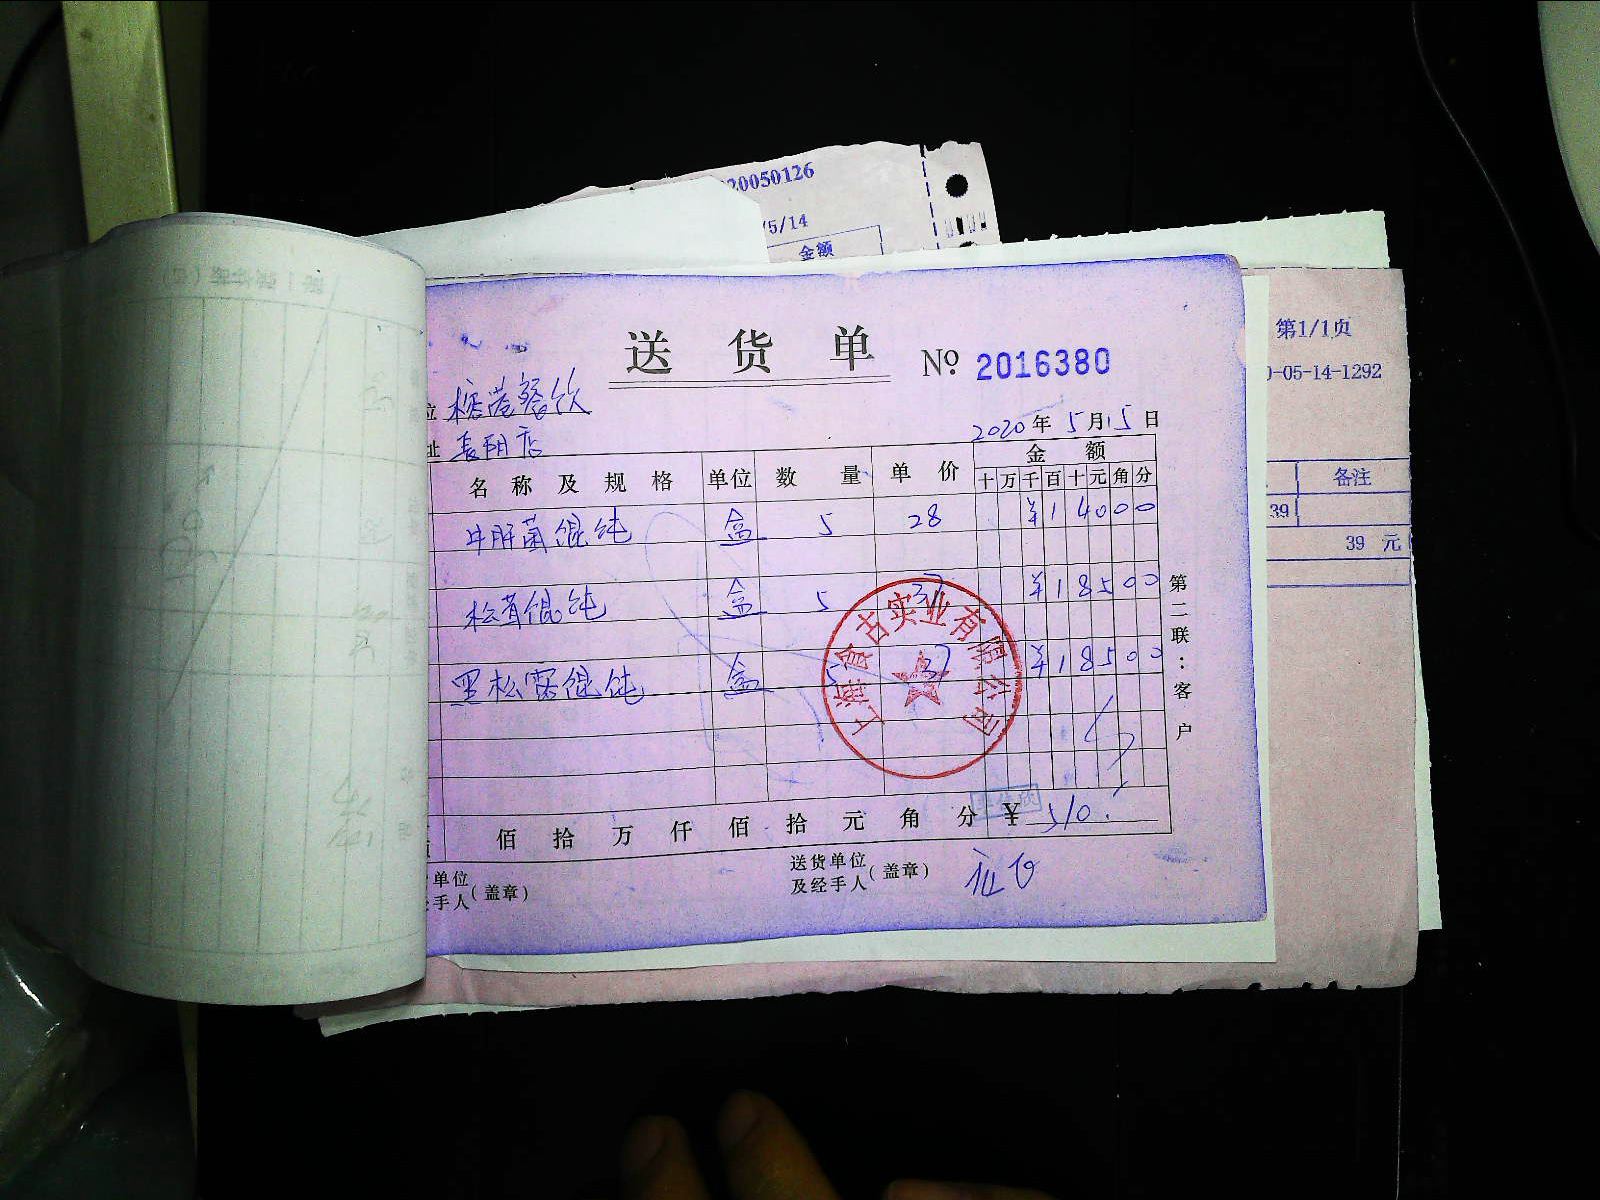 20050126
/5/14
金额
第1/1页
0-05-14-1292
备注
39
39 元
送货单
№ 2016380
位 榕港餐饮
址 长阳店
2020年5月15日
名称及规格 单位 数量 单价 金额
十万千百十元角分
牛肝菌馄饨 盒 5 28 ¥14000
松茸馄饨 盒 5 37 ¥18500
黑松露馄饨 盒 5 37 ¥18500
上海食古实业有限公司
第二联:客户
佰拾万仟佰拾元角分 ¥510.
单位
手人 (盖章)
送货单位
及经手人 (盖章)